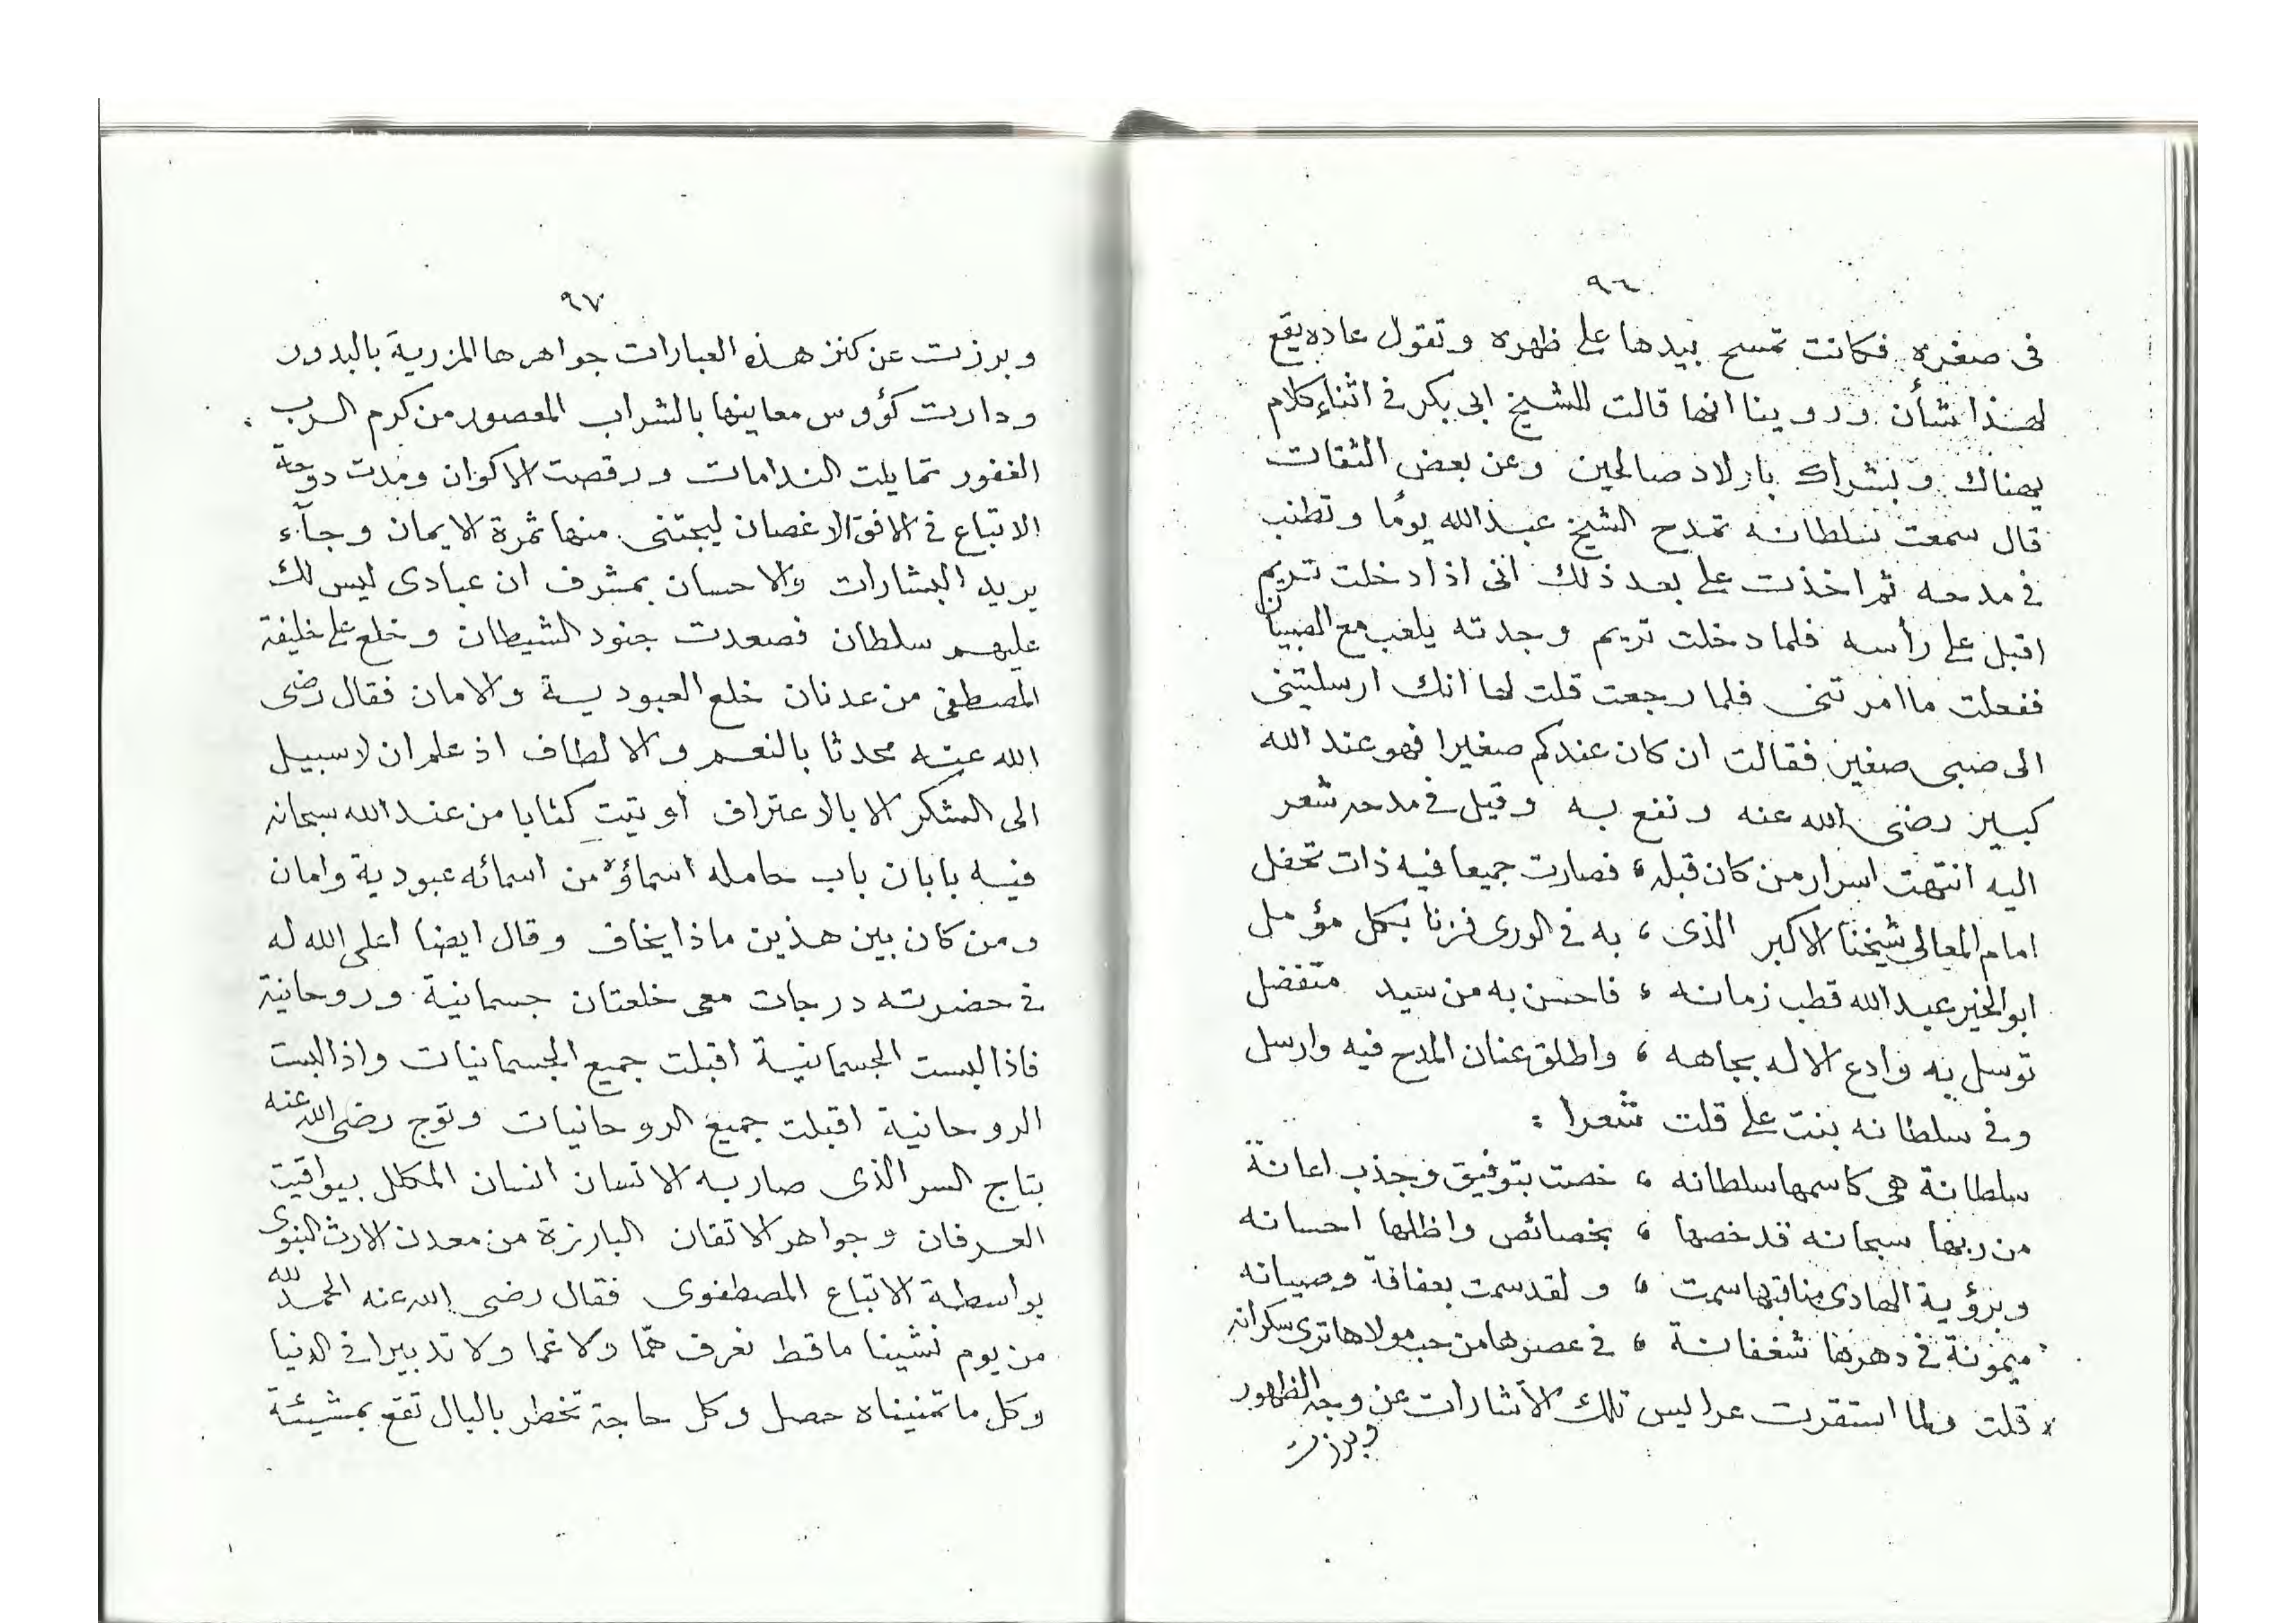 ٩٦
فى صغره فكانت تمسح بيدها على ظهره وتقول عاده يقع
لهذا شأن وروينا انها قالت للشيخ ابى بكر فى اثناء كلام
يهناك وبشراك باولاد صالحين وعن بعض الثقات
قال سمعت سلطانه تمدح الشيخ عبد الله يومًا وتطنب
فى مدحه ثم اخذت على بعد ذلك انى اذا دخلت تريم
اقبل على رأسه فلما دخلت تريم وجدته يلعب مع الصبيان
ففعلت ما امرتنى فلما رجعت قلت لها انك ارسليتنى
الى صبى صغير فقالت ان كان عندكم صغيرا فهو عند الله
كبير رضى الله عنه ونفع به وقيل فى مدحه شعر
اليه انتهت اسرار من كان قبله ، فصارت جميعا فيه ذات تحفل
امام المعالى شيخنا الاكبر الذى ، به فى الورى فزنا بكل مؤمل
ابو الخير عبد الله قطب زمانه ، فاحسن به من سيد متفضل
توسل به وادع الاله بجاهه ، واطلق عنان المدح فيه وارسل
وفى سلطانه بنت على قلت شعرا :
سلطانة هى كاسمها سلطانه ، خصت بتوفيق وجذب اعانة
من ربها سبحانه قد خصها ، بخصائص واظلها احسانه
وبرؤية الهادى مناقبها سمت ، ولقد سمت بعفافة وصيانه
ميمونة فى دهرها شغفانة ، فى عصرها من حب مولاها ترى سكرانه
× قلت ولما استقرت عرايس تلك الأشارات عن وجه الظهور
وبرزت
٩٧
وبرزت عن كنز هذه العبارات جواهرها المزرية بالبدور
ودارت كؤوس معاينها بالشراب المعصور من كرم الرب
الغفور تمايلت الندامات ورقصت الاكوان ومدت دوحة
الاتباع فى الافق الاغصان ليجتنى منها ثمرة الايمان وجآء
بريد البشارات والاحسان بمشرف ان عبادى ليس لك
عليهم سلطان فصعدت جنود الشيطان وخلع على خليفة
المصطفى من عدنان خلع العبودية والامان فقال رضى
الله عنه محدثا بالنعم والالطاف اذ علم ان لا سبيل
الى الشكر الا بالاعتراف أوتيت كتابا من عند الله سبحانه
فيه بابان باب حامله اسماؤه من اسمائه عبودية وامان
ومن كان بين هذين ماذا يخاف وقال ايضا اعلى الله له
فى حضرته درجات معى خلعتان جسمانية وروحانية
فاذا لبست الجسمانية اقبلت جميع الجسمانيات واذا لبست
الروحانية اقبلت جميع الروحانيات وتوج رضى الله عنه
بتاج السر الذى صار به الانسان انسان المكلل بيواقيت
العرفان وجواهر الاتقان البارزة من معدن الارث النبوى
بواسطة الاتباع المصطفوى فقال رضى الله عنه الحمد لله
من يوم نشينا ما قط نعرف همّا ولا غما ولا تدبيرا فى الدنيا
وكل ما تمنيناه حصل وكل حاجة تخطر بالبال تقع بمشيئة